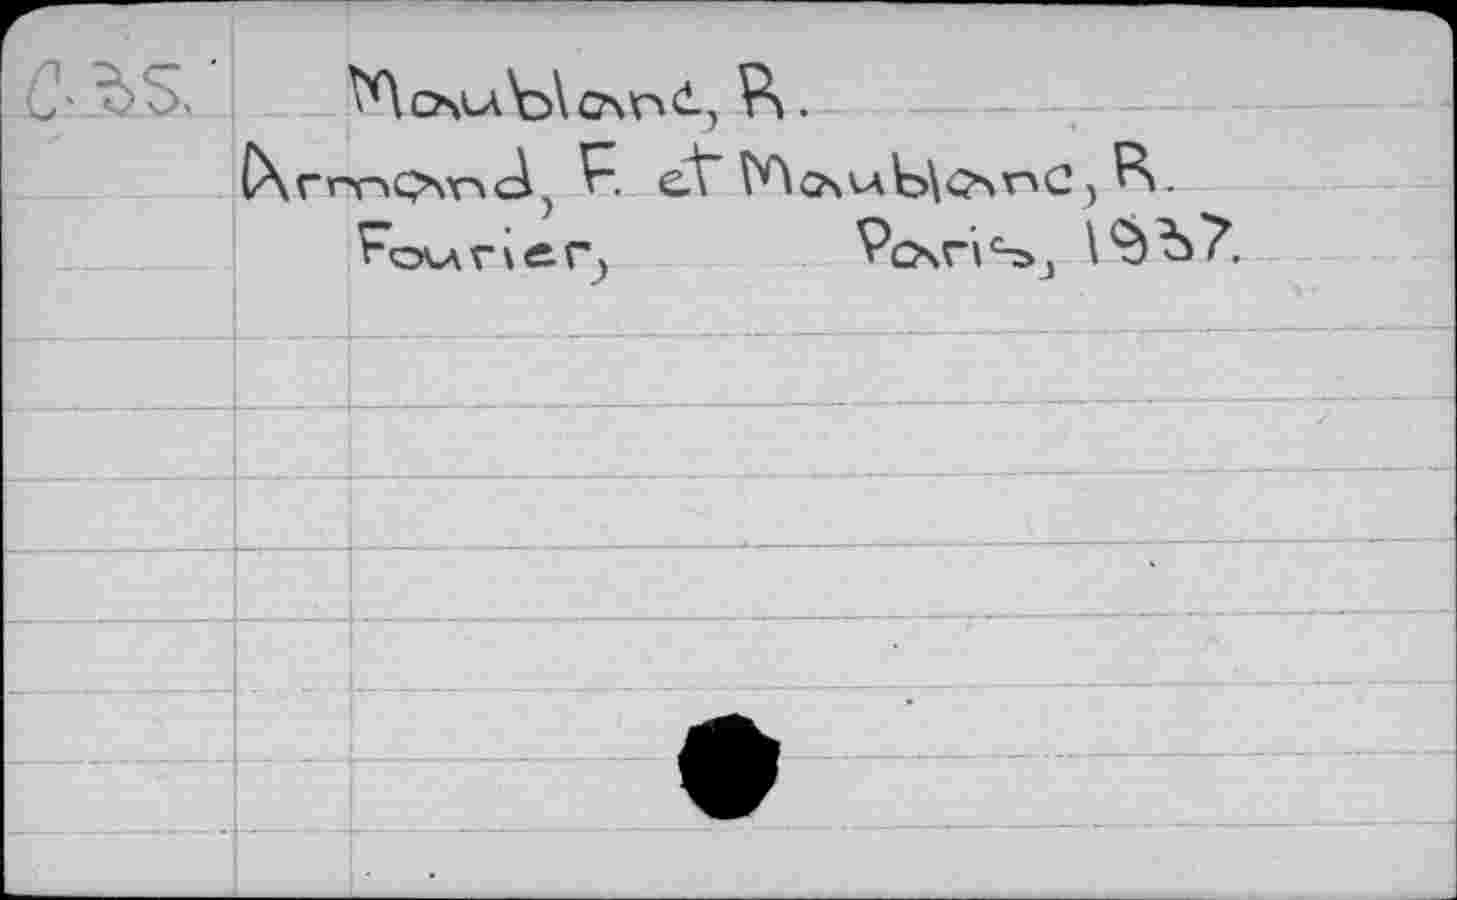 C.35. Maublanc, R.
Armand, F. et Maublanc, R.
Fourier, Paris, 1937.